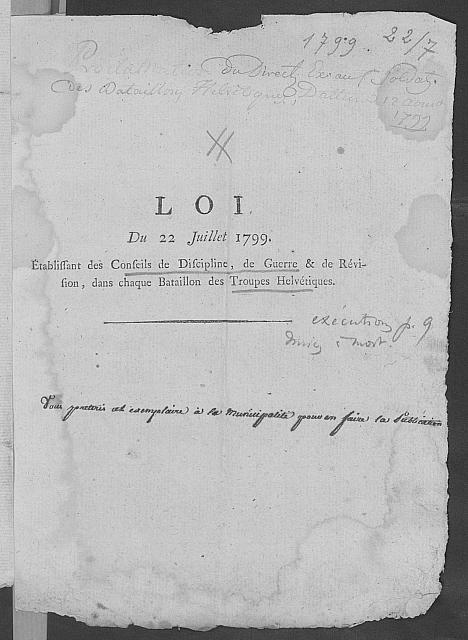 1799. 22/7
Proclamation du Direct. Ex. aux Soldats
des Bataillons Helvétiques, 12 aout
1799
LOI
Du 22 Juillet 1799.
Établiſſant des Conſeils de Diſcipline, de Guerre & de Révi-
ſion, dans chaque Bataillon des Troupes Helvétiques.
exécution p. 9
à mort.
Vous porterés cet exemplaire à la Municipalité pour en faire la Publication